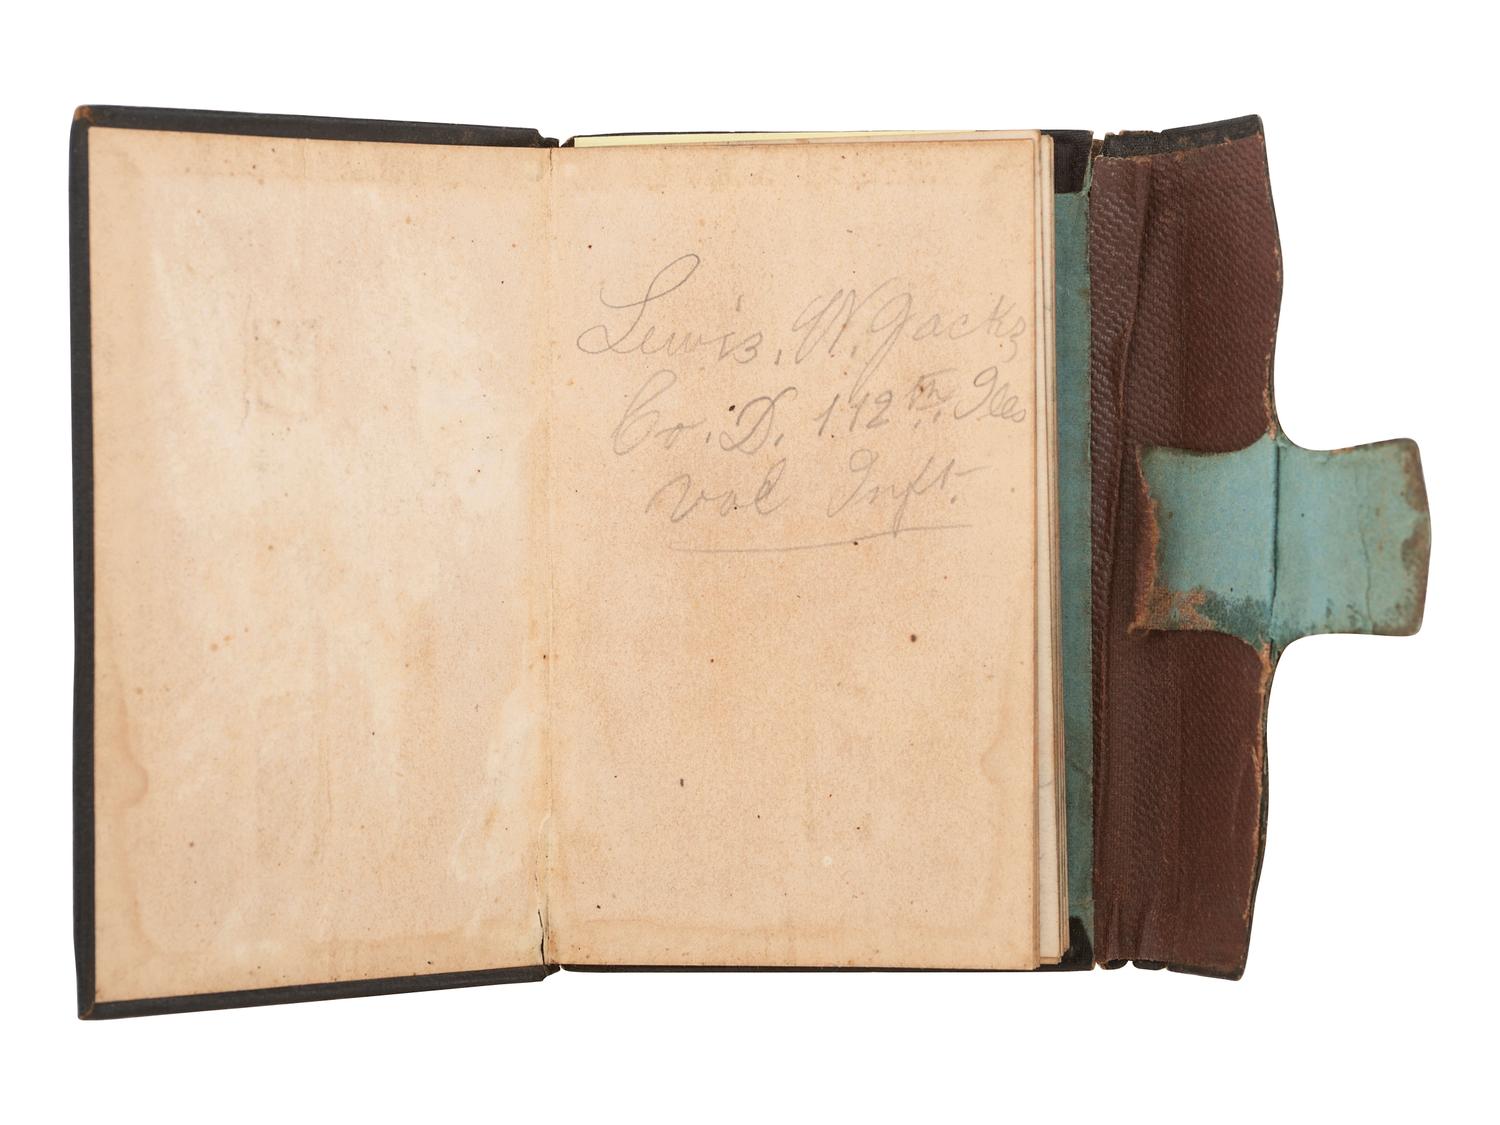 Lewis, W. Jacks
Co. D. 112th. Ills
vol Inft.